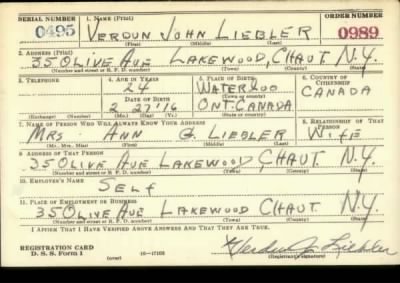 SERIAL NUMBER 1. NAME (Print) ORDER NUMBER
0495 VERDUN JOHN LIEBLER 0989
(First) (Middle) (Last)
2. ADDRESS (Print)
35 OLIVE AVE LAKEWOOD, CHAUT. N.Y.
(Number and street or R. F. D. number) (Town) (County) (State)
3. TELEPHONE 4. AGE IN YEARS 5. PLACE OF BIRTH 6. COUNTRY OF CITIZENSHIP
24 WATERLOO CANADA
DATE OF BIRTH (Town) (County)
2 27 '16 ONT. CANADA
(Exchange) (Number) (Mo.) (Day) (Yr.) (State or country)
7. NAME OF PERSON WHO WILL ALWAYS KNOW YOUR ADDRESS 8. RELATIONSHIP OF THAT PERSON
MRS ANN G LIEBLER WIFE
(Mr., Mrs., Miss) (First) (Middle) (Last)
9. ADDRESS OF THAT PERSON
35 OLIVE AVE LAKEWOOD CHAUT. N.Y.
(Number and street or R. F. D. number) (Town) (County) (State)
10. EMPLOYER'S NAME
SELF
11. PLACE OF EMPLOYMENT OR BUSINESS
35 OLIVE AVE LAKEWOOD CHAUT N.Y.
(Number and street or R. F. D. number) (Town) (County) (State)
I AFFIRM THAT I HAVE VERIFIED ABOVE ANSWERS AND THAT THEY ARE TRUE.
REGISTRATION CARD
D. S. S. Form 1 (over) 16—17105 Verdun J. Liebler
(Registrant's signature)